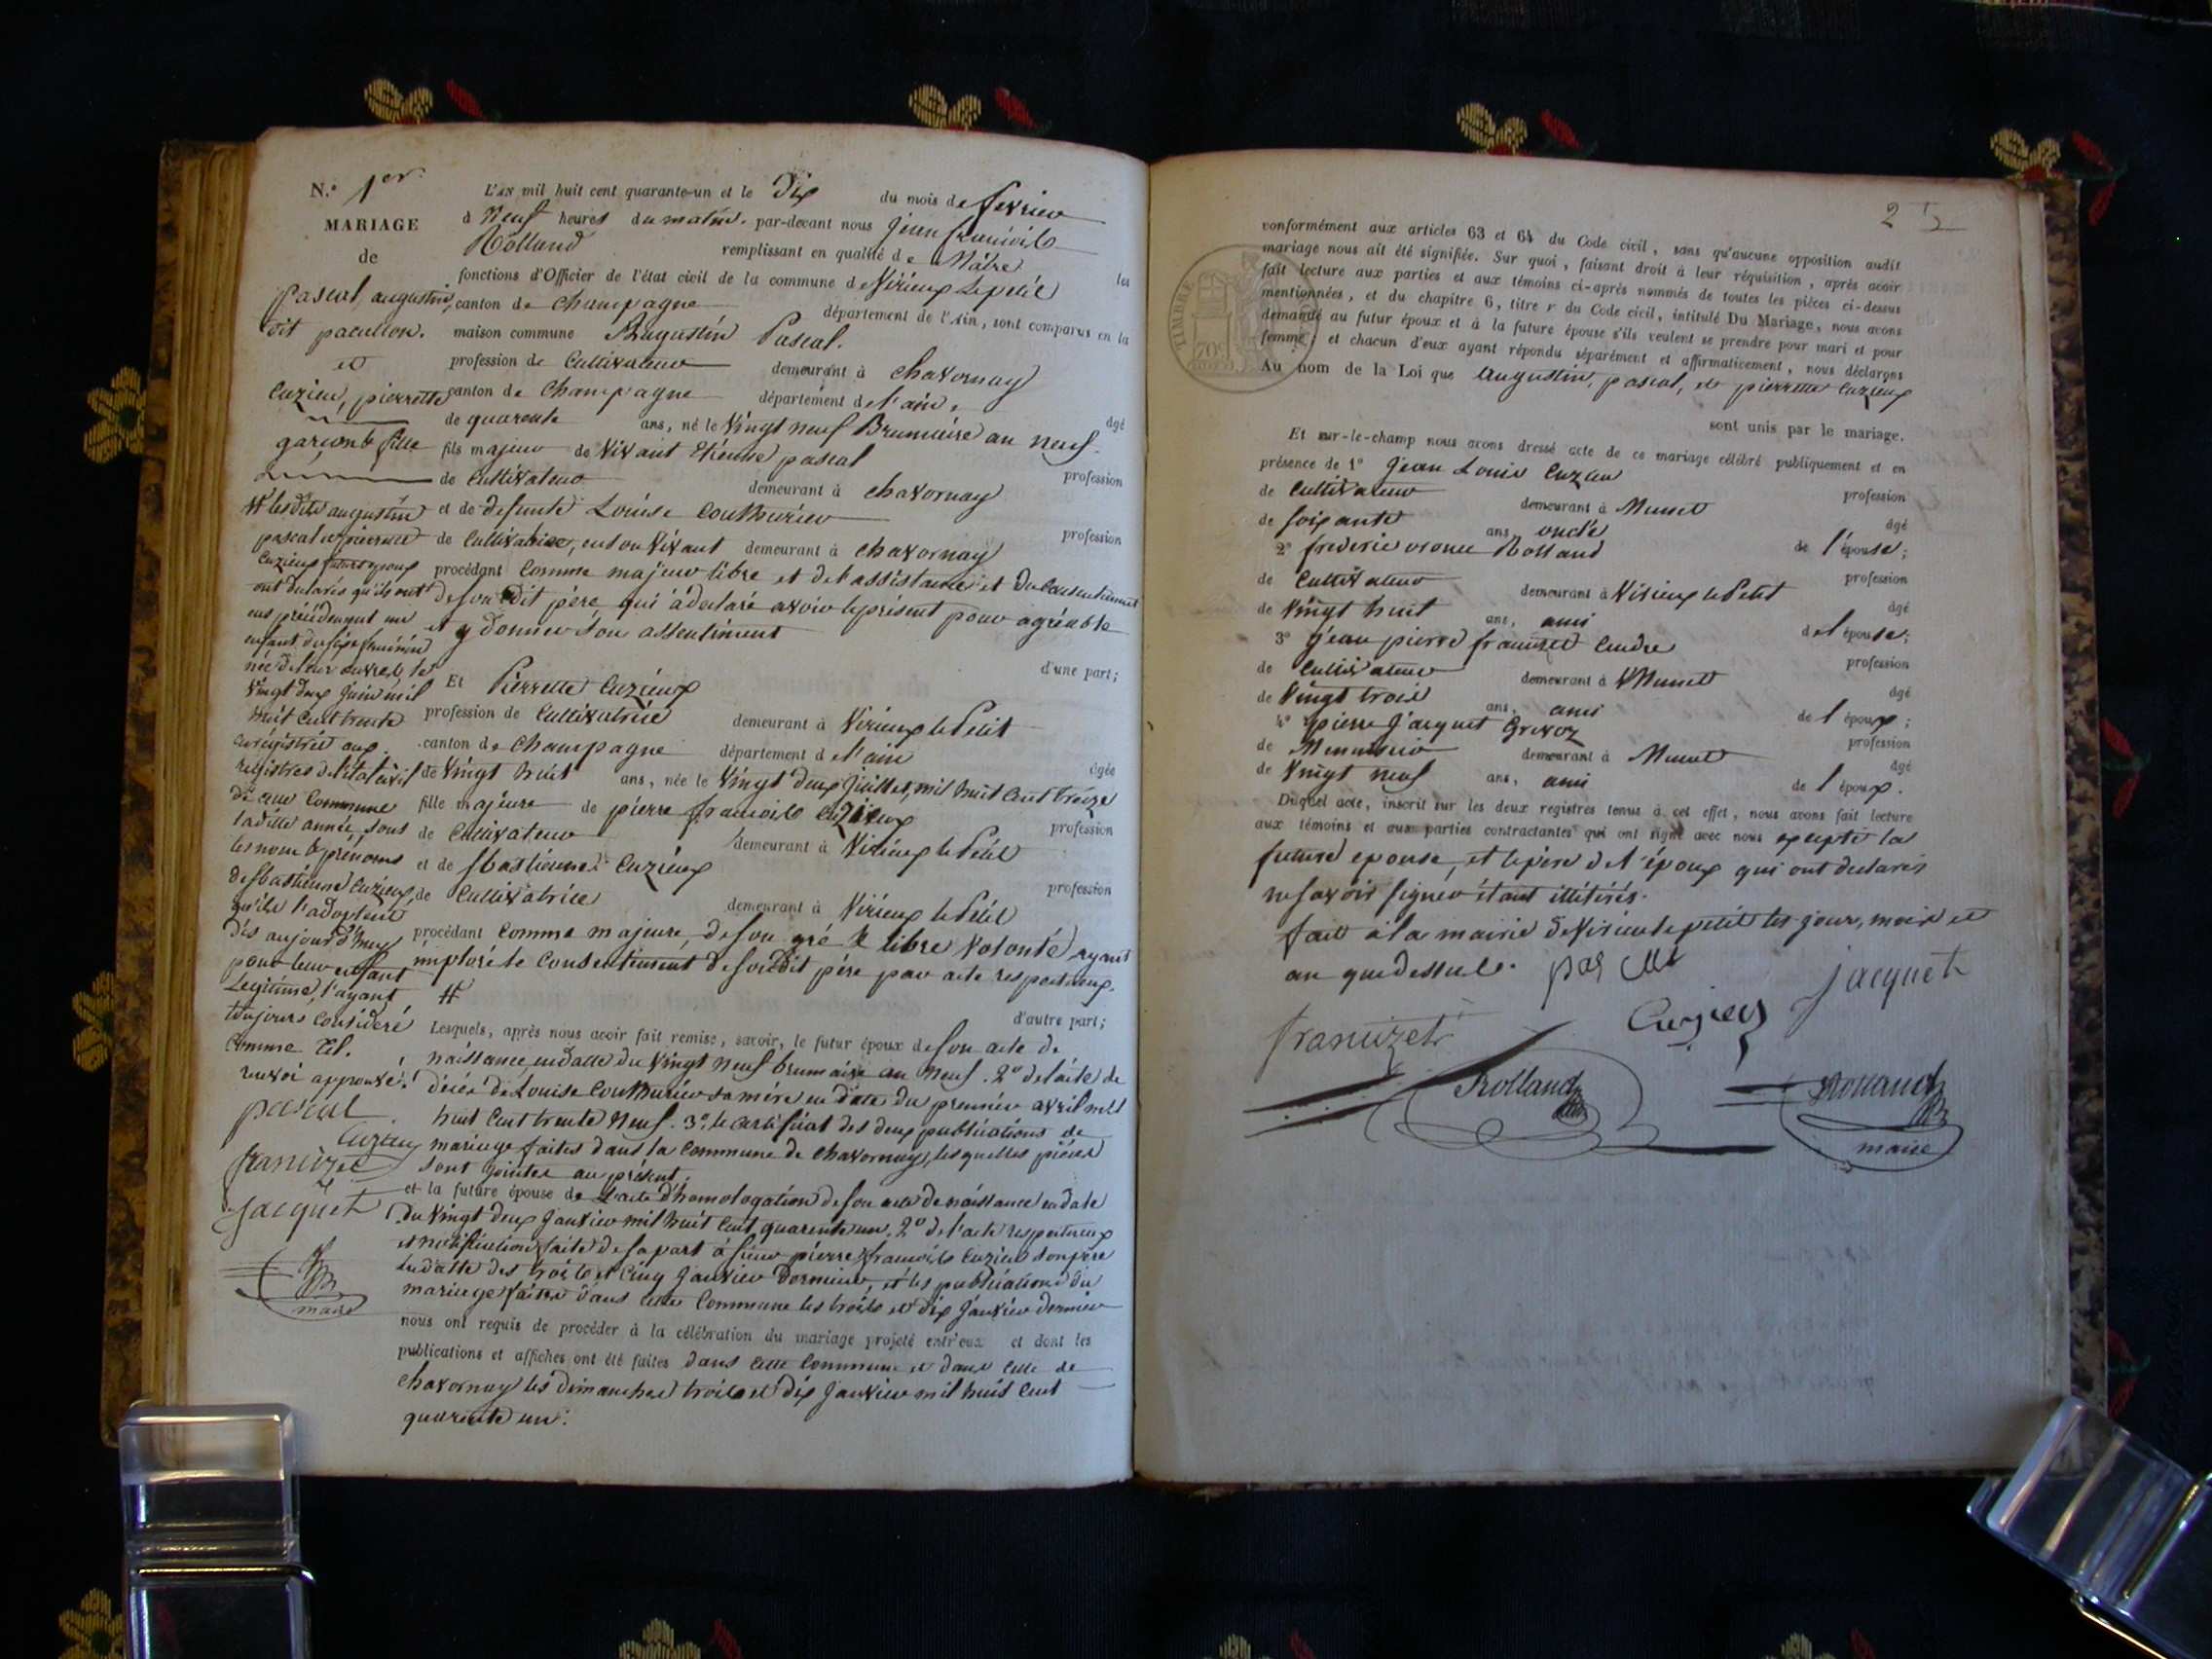 N.° 1er
MARIAGE
de
pascal, augustin,
dit pacullon.
et
Cuzieu, pierrette
garçon & fille
# lesdits augustin
pascal et pierrette
Cuzieux futurs epoux
ont declarés qu'ils ont
eus précédemment un
enfant du sexe féminin
née de leur œuvre, le
Vingt deux juin mil
huit cent trente
enrégistrée aux
registres de l'état civil
de cette Commune
ladite année, sous
les noms & prenoms
de sbastienne Cuzieux,
qu'ils l'adoptent
dès aujourd'huy
pour leur enfant
Légitime, l'ayant
toujours Consideré
Comme tel.
renvoi approuvé.
pascal
Cuzieu
francizet
Jacquet
maire
L'AN mil huit cent quarante-un et le Dix du mois de fevrier
à Neuf heures du matin. par-devant nous jean francois
Rolland remplissant en qualité de Maire les
fonctions d'Officier de l'état civil de la commune de Virieux Lepetit
canton de Champagne département de l'Ain, sont comparus en la
maison commune Augustin Pascal.
profession de Cultivateur demeurant à chavornay
canton de Champagne département de l'ain. âgé
de quarente ans, né le Vingt neuf Brumaire an neuf.
fils majeur de Vivant Etienne pascal profession
de Cultivateur demeurant à chavornay
et de defunte Louise Couthurier profession
de Cultivatrice, en son Vivant demeurant à chavornay
procédant Comme majeur libre et de l'assistance et du Consentement
de son dit père qui à declaré avoir le présent pour agréable
et y donner son assentiment d'une part;
Et Pierrette Cuzieux
profession de Cultivatrice demeurant à Virieux le Petit
canton de Champagne département de l'ain âgée
de Vingt huit ans, née le Vingt deux juillet, mil huit Cent treize
fille majeure de pierre francois Cuzieux profession
de Cultivateur demeurant à Virieux le Petit
et de sbastienne Cuzieux profession
de Cultivatrice demeurant à Virieux le Petit
procédant Comme majeure, de son gré & libre Volonté, ayant
imploré le Consentement de son dit père par acte respectueux.
# d'autre part;
Lesquels, après nous avoir fait remise, savoir, le futur époux de son acte de
naissance, en datte du Vingt neuf brumaire an neuf. 2° de l'acte de
décès de Louise Couthurier sa mère en date du premier avril mil
huit Cent trente neuf. 3° le Certificat des deux publications de
mariage faites dans la Commune de Chavornay, lesquelles pièces
sont jointes au présent;
et la future épouse de L'acte d'homologation de son acte de naissance en date
du Vingt deux janvier mil huit Cent quarente un. 2° de l'acte respectueux
et notification faite de sa part à sieur pierre francois Cuzieu son père
en datte des trois et Cinq janvier Dernier, et les publications du
mariage faites dans cette Commune les trois et dix janvier dernier
nous ont requis de procéder à la célébration du mariage projeté entr'eux et dont les
publications et affiches ont été faites dans cette Commune et dans celle de
Chavornay les dimanches trois et dix janvier mil huit Cent
quarente un.
2
TIMBRE
70c
conformément aux articles 63 et 64 du Code civil, sans qu'aucune opposition audit
mariage nous ait été signifiée. Sur quoi, faisant droit à leur réquisition, après avoir
fait lecture aux parties et aux témoins ci-après nommés de toutes les pièces ci-dessus
mentionnées, et du chapitre 6, titre v du Code civil, intitulé Du Mariage, nous avons
demandé au futur époux et à la future épouse s'ils veulent se prendre pour mari et pour
femme; et chacun d'eux ayant répondu séparément et affirmativement, nous déclarons
Au nom de la Loi que Augustin, pascal, et pierrette Cuzieux
sont unis par le mariage.
Et sur-le-champ nous avons dressé acte de ce mariage célébré publiquement et en
présence de 1° Jean Louis Cuzieu profession
de Cultivateur demeurant à Munet âgé
de soixante ans, oncle de l'épouse;
2° frederic Rolland profession
de Cultivateur demeurant à Virieux le Petit âgé
de Vingt huit ans, ami de l'épouse;
3° jean pierre francizet profession
de Cultivateur demeurant à Munet âgé
de Vingt trois ans, ami de l'époux;
4° pierre Jacquet Grevoz profession
de Menuisier demeurant à Munet âgé
de Vingt neuf ans, ami de l'époux.
Duquel acte, inscrit sur les deux registres tenus à cet effet, nous avons fait lecture
aux témoins et aux parties contractantes qui ont signé avec nous excepté la
future epouse, et le père de l'époux qui ont declarés
ne savoir signer étant illitérés.
fait à la mairie de Virieu le petit les jour, mois et
an que dessus.
pascal
Jacquet
francizet
Cuzieu
Rolland
Rolland
maire